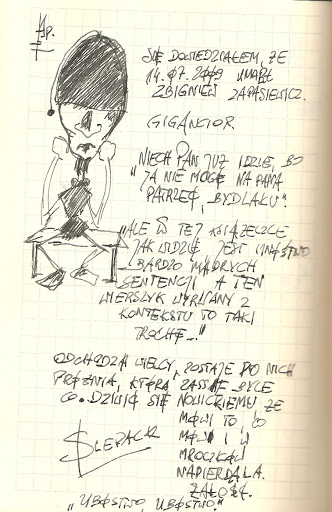 SIĘ DOWIEDZIAŁEM, ŻE
14.07.2009 UMARŁ
ZBIGNIEW ZAPASIEWICZ.
GIGANCIOR.
NIECH PAN JUŻ IDZIE, BO
"JA NIE MOGĘ NA PANA
PATRZEĆ, BYDLAKU".
"ALE W TEJ KSIĄŻECZCE
JAK WIDZĘ JEST MNÓSTWO
BARDZO MĄDRYCH
SENTENCJI A TEN
WIERSZYK WYRWANY Z
KONTEKSTU TO TAKI
TROCHĘ..."
ODCHODZĄ WIELCY, ZOSTAJE PO NICH
PRÓŻNIA, KTÓRĄ ZASSIE BYLE
CO. DZIWIĆ SIĘ NOWICKIEMU ŻE
MÓWI TO, CO
MÓWI I W
MROCZKÓW
NAPIERDALA.
ŻAŁOŚĆ.
ŚLEPACK
"UBÓSTWO, UBÓSTWO."